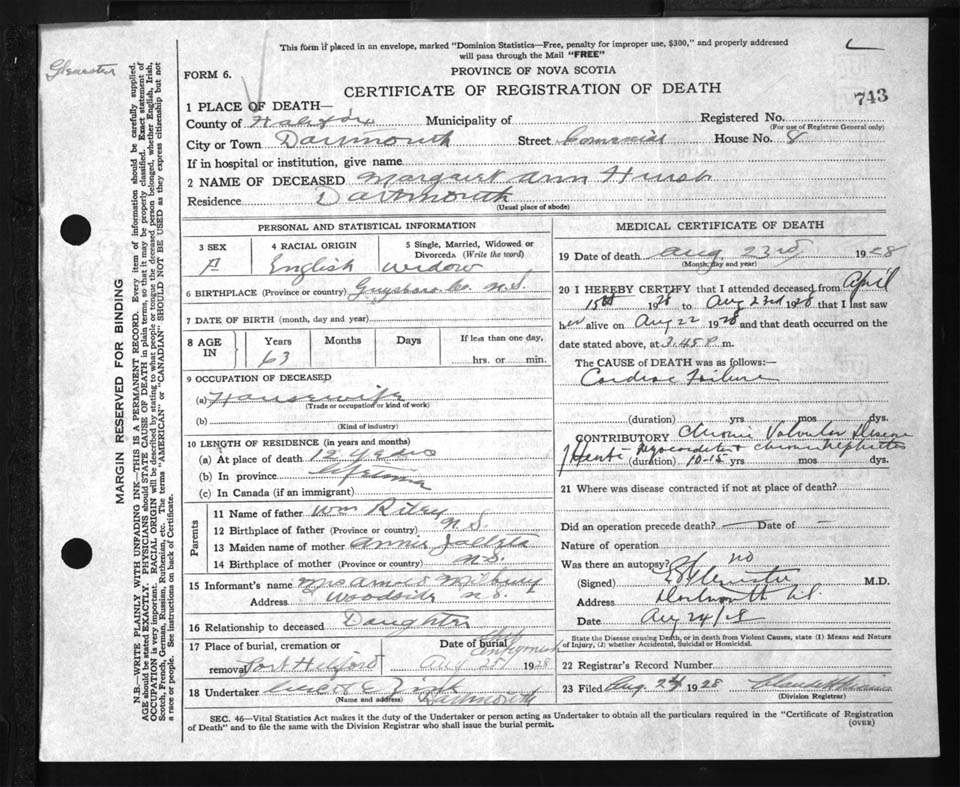 This form if placed in an envelope, marked "Dominion Statistics—Free, penalty for improper use, $300," and properly addressed
will pass through the Mail "FREE"
FORM 6.
PROVINCE OF NOVA SCOTIA
CERTIFICATE OF REGISTRATION OF DEATH
743
1 PLACE OF DEATH—
County of Halifax Municipality of Registered No.
(For use of Registrar General only)
City or Town Dartmouth Street Commercial House No. 8
If in hospital or institution, give name
2 NAME OF DECEASED Margaret Ann Hurst
Residence Dartmouth
(Usual place of abode)
PERSONAL AND STATISTICAL INFORMATION
3 SEX 4 RACIAL ORIGIN 5 Single, Married, Widowed or
Divorced. (Write the word)
F English widow
6 BIRTHPLACE (Province or country) Guysboro Co. N.S.
7 DATE OF BIRTH (month, day and year)
8 AGE IN Years Months Days If less than one day,
63 hrs. or min.
9 OCCUPATION OF DECEASED
(a) Housewife
(Trade or occupation or kind of work)
(b)
(Kind of industry)
10 LENGTH OF RESIDENCE (in years and months)
(a) At place of death 12 Years
(b) In province Lifetime
(c) In Canada (if an immigrant)
Parents
11 Name of father Wm Riley
12 Birthplace of father (Province or country) N.S.
13 Maiden name of mother Annie
14 Birthplace of mother (Province or country) N.S.
15 Informant's name Mrs Milbury
Address Woodside N.S.
16 Relationship to deceased Daughter
17 Place of burial, cremation or Date of burial
removal Port Hilford Antigonish Aug 25 1928
18 Undertaker
(Name and address) Dartmouth
MEDICAL CERTIFICATE OF DEATH
19 Date of death Aug 23rd 1928
(Month, day and year)
20 I HEREBY CERTIFY that I attended deceased from April
15th 1928 to Aug 23rd 1928 that I last saw
her alive on Aug 22 1928 and that death occurred on the
date stated above, at 3.45 P. m.
The CAUSE OF DEATH was as follows:—
Cardiac Failure
(duration) yrs mos dys.
CONTRIBUTORY Chronic Valvular Disease
Heart Myocarditis & Chronic Nephritis
(duration) 10-15 yrs mos dys.
21 Where was disease contracted if not at place of death?
Did an operation precede death? — Date of —
Nature of operation
Was there an autopsy? no
(Signed) M.D.
Address Dartmouth N.S.
Date Aug 24/28
State the Disease causing Death, or in death from Violent Causes, state (1) Means and Nature
of Injury, (2) whether Accidental, Suicidal or Homicidal.
22 Registrar's Record Number
23 Filed Aug 24 1928
(Division Registrar)
SEC. 46—Vital Statistics Act makes it the duty of the Undertaker or person acting as Undertaker to obtain all the particulars required in the "Certificate of Registration
of Death" and to file the same with the Division Registrar who shall issue the burial permit.
(OVER)
MARGIN RESERVED FOR BINDING
N.B.—WRITE PLAINLY WITH UNFADING INK—THIS IS A PERMANENT RECORD. Every item of information should be carefully supplied.
AGE should be stated EXACTLY. PHYSICIANS should STATE CAUSE OF DEATH in plain terms, so that it may be properly classified. Exact statement of
OCCUPATION is very important. RACIAL ORIGIN will be described by stating to what people or tongue the deceased person belonged, whether English, Irish,
Scotch, French, German, Russian, Ruthenian, etc. The terms "AMERICAN" or "CANADIAN" SHOULD NOT BE USED as they express citizenship but not
a race or people. See instructions on back of Certificate.